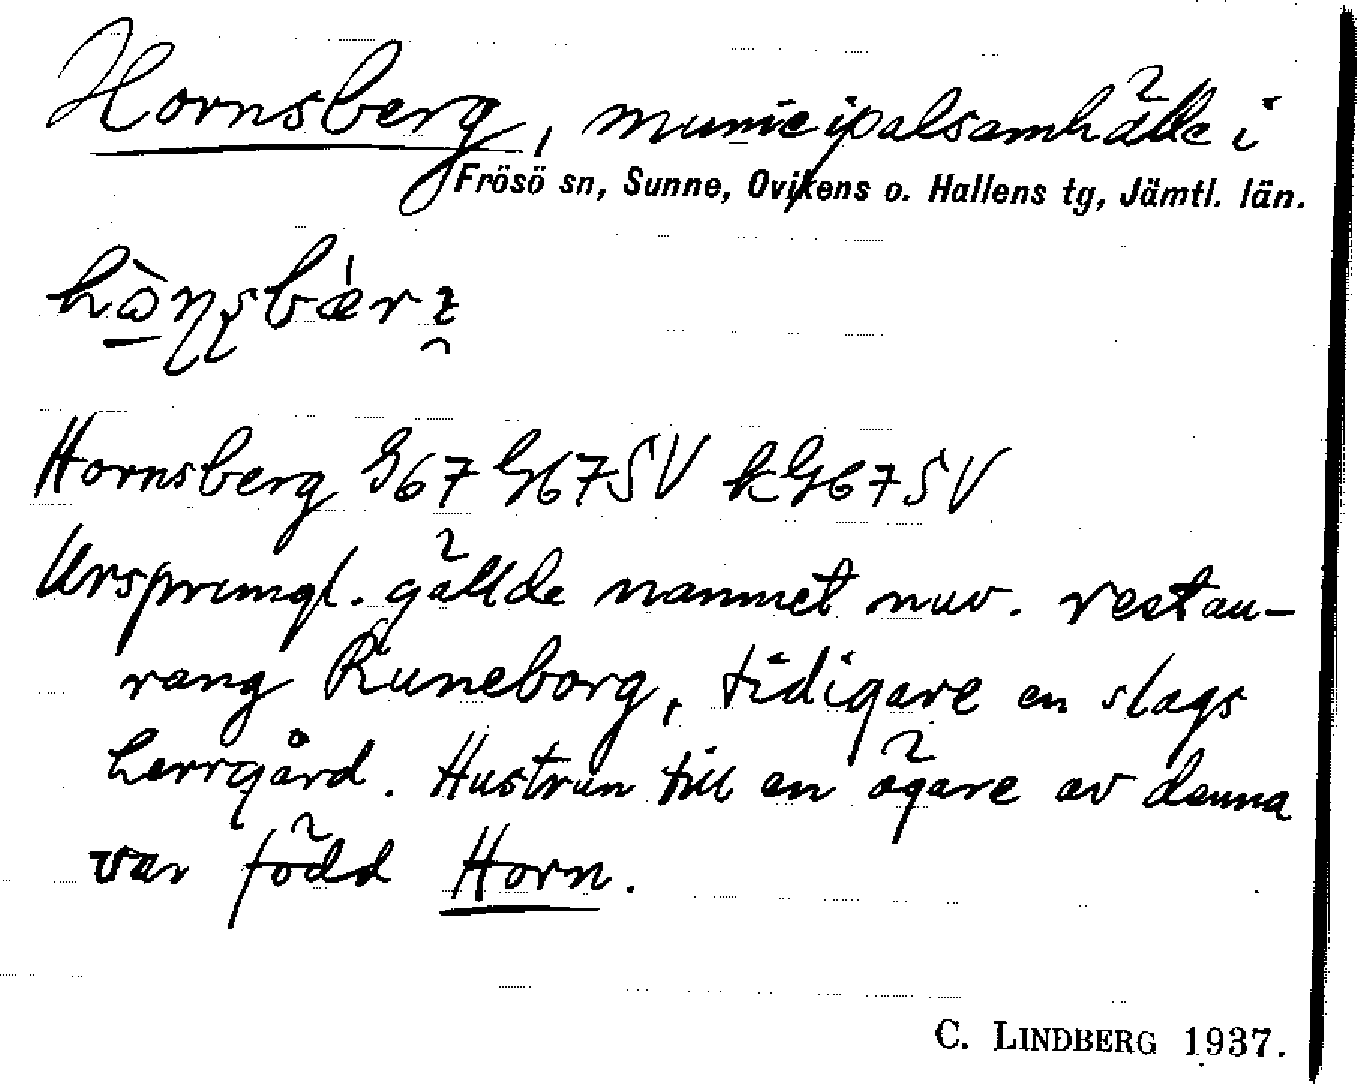 Hornsberg, municipalsamhälle i
Frösö sn, Sunne, Ovikens o. Hallens tg, Jämtl. län.
Hornsberg G67 G67SV kG67SV
Ursprungl. gällde namnet nuv. restau-
rang Runeborg, tidigare en slags
herrgård. Hustrun till en ägare av denna
var född Horn.
C. LINDBERG 1937.